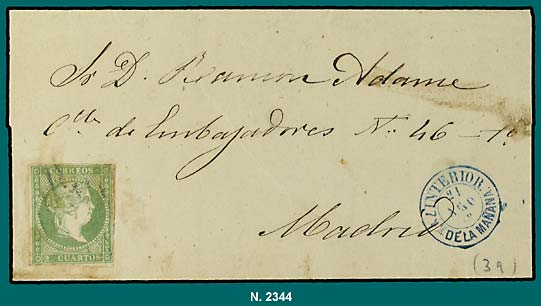 Sr D. Ramon Adame
Clle de Embajadores Nº 46 - 1º
Madrid
CORREOS
2 CUARTOS
INTERIOR
21
DE LA MAÑANA
(39)
N. 2344